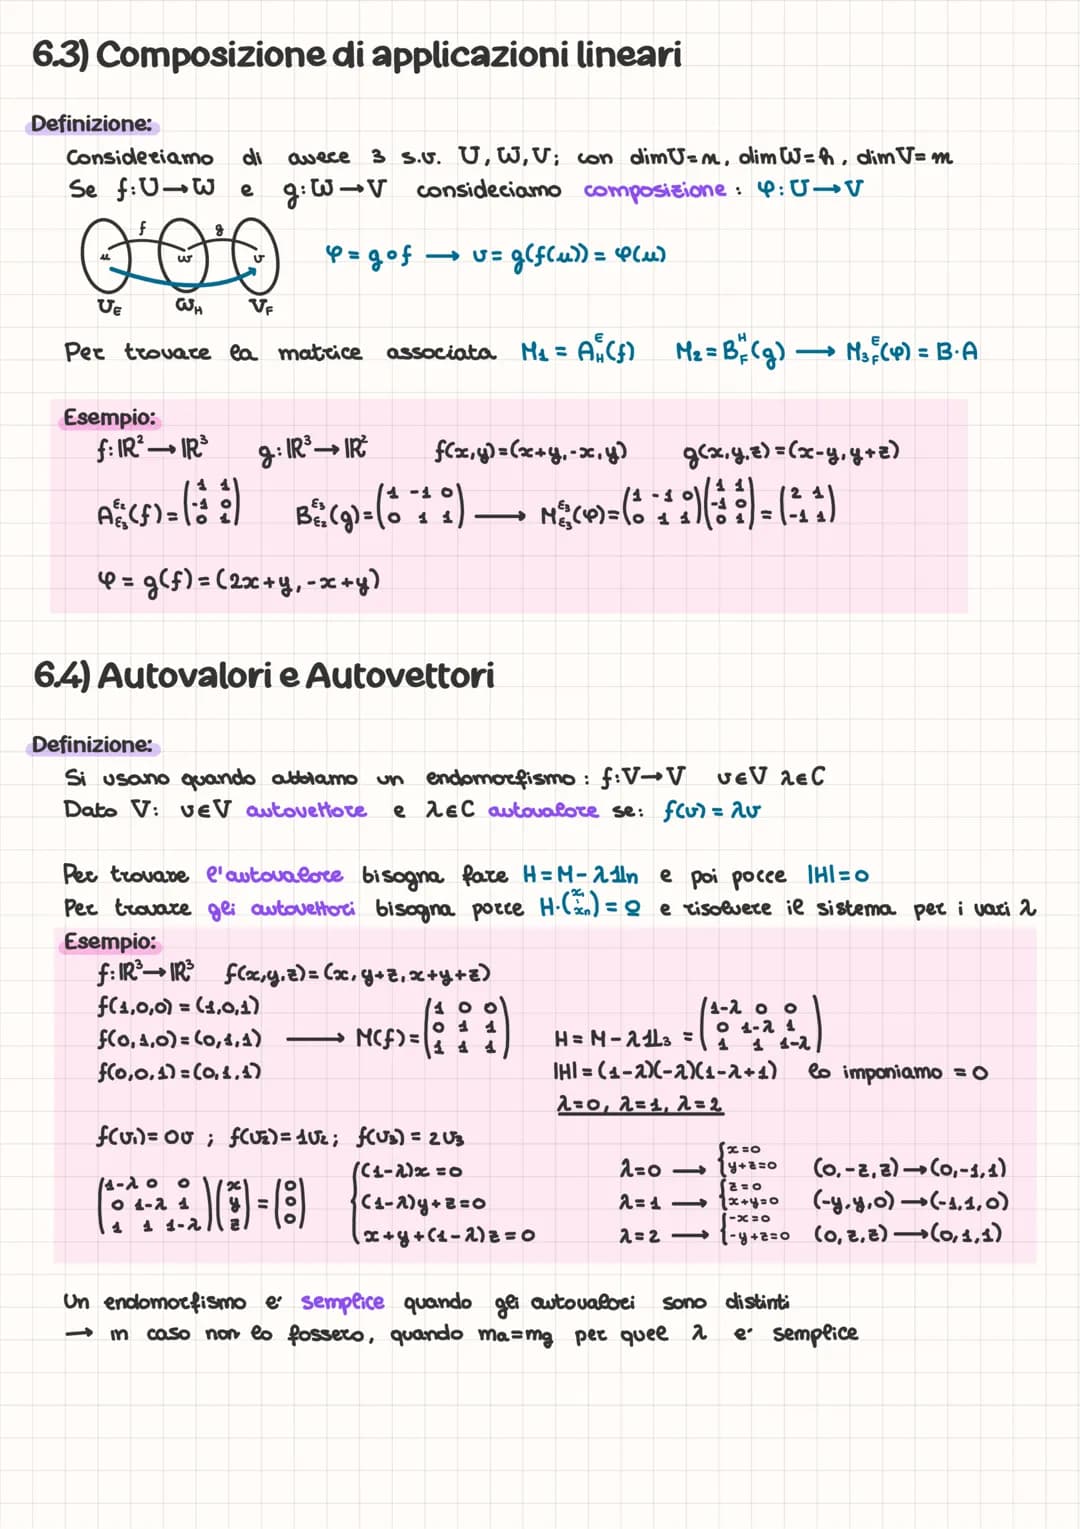 6.3) Composizione di applicazioni lineari
Definizione:
Consideriamo di avere 3 s.v. U, W, V; con dimU=n, dimW=h, dimV=m
Se f:U→W e g:W→V consideriamo composizione : φ:U→V
f g
u w v
φ = g∘f → v= g(f(u)) = φ(u)
U_E W_H V_F
Per trovare la matrice associata M₁ = A_H^E(f) M₂ = B_F^H(g) → M₃_F^E(φ) = B·A
Esempio:
f:ℝ²→ℝ³ g:ℝ³→ℝ² f(x,y)=(x+y,-x,y) g(x,y,z)=(x-y,y+z)
A_{E₃}^{E₂}(f)=(1 1; -1 0; 0 1) B_{E₂}^{E₃}(g)=(1 -1 0; 0 1 1) → M_{E₃}^{E₃}(φ)=(1 -1 0; 0 1 1)(1 1; -1 0; 0 1) = (2 1; -1 1)
φ = g(f) = (2x+y,-x+y)
6.4) Autovalori e Autovettori
Definizione:
Si usano quando abbiamo un endomorfismo : f:V→V v∈V λ∈C
Dato V: v∈V autovettore e λ∈C autovalore se: f(v) = λv
Per trovare l'autovalore bisogna fare H=M-λ𝟙n e poi porre |H|=0
Per trovare gli autovettori bisogna porre H·(x₁ ⋮ xₙ) = 0 e risolvere il sistema per i vari λ
Esempio:
f:ℝ³→ℝ³ f(x,y,z)=(x,y+z,x+y+z)
f(1,0,0) = (1,0,1)
f(0,1,0)=(0,1,1) → M(f)=(1 0 0; 0 1 1; 1 1 1) H=M-λ𝟙₃ = (1-λ 0 0; 0 1-λ 1; 1 1 1-λ)
f(0,0,1)=(0,1,1) |H| = (1-λ)(-λ)(1-λ+1) lo imponiamo = 0
λ=0, λ=1, λ=2
f(v₁)= 0v ; f(v₂)= 1v₂; f(v₃) = 2v₃
(1-λ 0 0; 0 1-λ 1; 1 1 1-λ)(x; y; z) = (0; 0; 0) {(1-λ)x =0; (1-λ)y+z=0; x+y+(1-λ)z=0
λ=0 → {x=0; y+z=0 (0,-z,z)→(0,-1,1)
λ=1 → {z=0; x+y=0 (-y,y,0)→(-1,1,0)
λ=2 → {-x=0; -y+z=0 (0,z,z)→(0,1,1)
Un endomorfismo e' semplice quando gli autovalori sono distinti
→ in caso non lo fossero, quando ma=mg per quel λ e' semplice